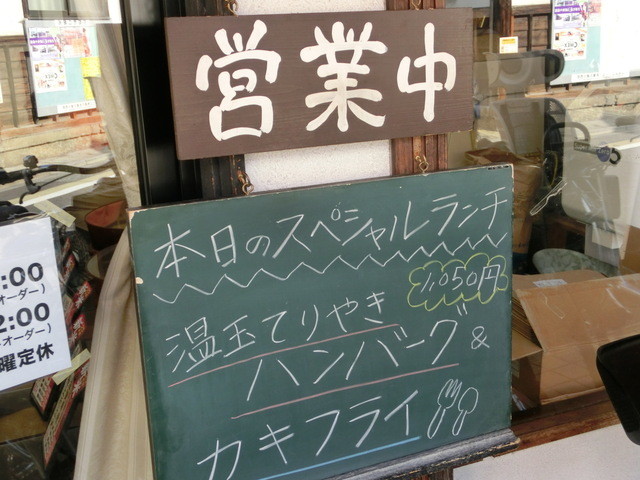 営業中
本日のスペシャルランチ
1,050円
温玉てりやき
ハンバーグ &
カキフライ
:00
オーダー)
2:00
オーダー)
曜定休